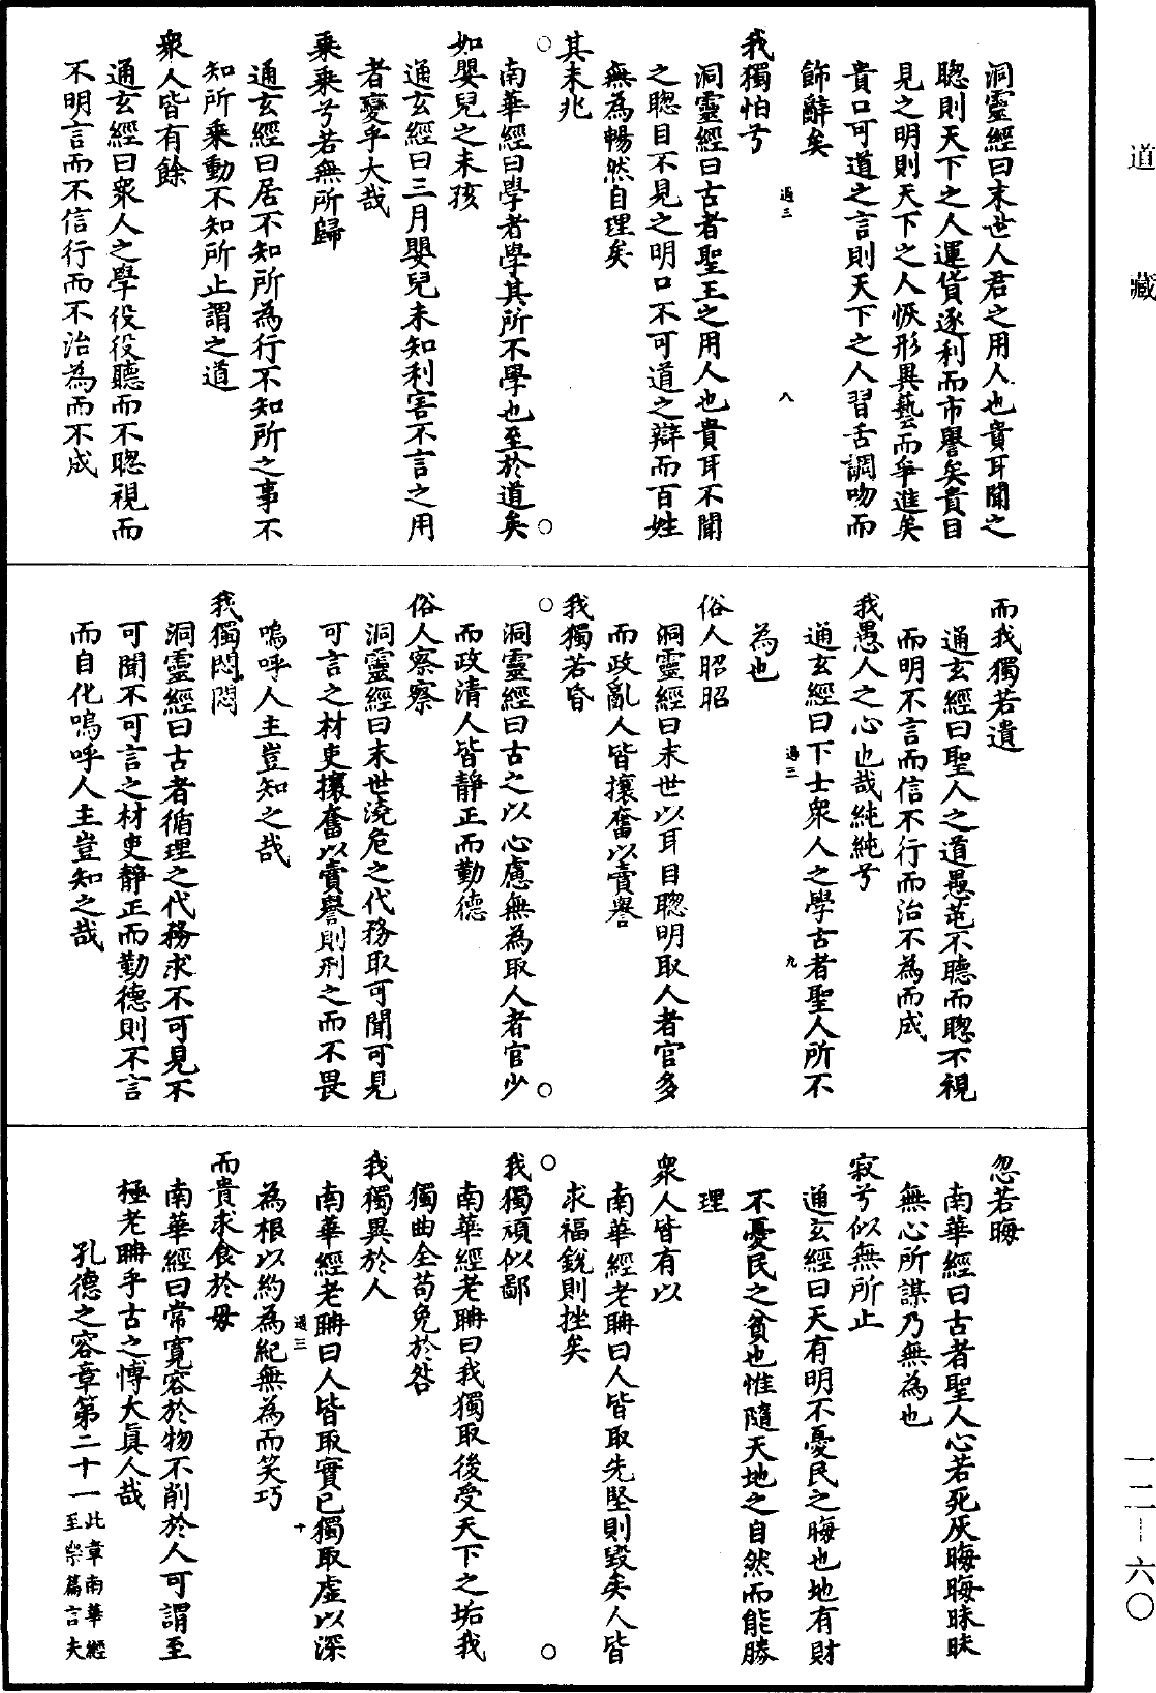 道藏
洞靈經曰末世人君之用人也貴耳聞之
聦則天下之人運貨逐利而市譽矣貴目
見之明則天下之人恢形異藝而爭進矣
貴口可道之言則天下之人習舌調吻而
飾辭矣
通三 八
我獨怕兮
洞靈經曰古者聖王之用人也貴耳不聞
之聦目不見之明口不可道之辯而百姓
無為暢然自理矣
其未兆
南華經曰學者學其所不學也至於道矣
如嬰兒之未孩
通玄經曰三月嬰兒未知利害不言之用
者變乎大哉
乗乗兮若無所歸
通玄經曰居不知所為行不知所之事不
知所乗動不知所止謂之道
衆人皆有餘
通玄經曰衆人之學役役聽而不聦視而
不明言而不信行而不治為而不成
而我獨若遺
通玄經曰聖人之道愚芚不聽而聦不視
而明不言而信不行而治不為而成
我愚人之心也哉純純兮
通玄經曰下士衆人之學古者聖人所不
通三 九
為也
俗人昭昭
洞靈經曰末世以耳目聦明取人者官多
而政亂人皆攘奮以賣譽
我獨若昏
洞靈經曰古之以心慮無為取人者官少
而政清人皆靜正而勤德
俗人察察
洞靈經曰末世澆危之代務取可聞可見
可言之材吏攘奮以賣譽則刑之而不畏
嗚呼人主豈知之哉
我獨悶悶
洞靈經曰古者循理之代務求不可見不
可聞不可言之材吏靜正而勤德則不言
而自化嗚呼人主豈知之哉
忽若晦
南華經曰古者聖人心若死灰晦晦昧昧
無心所謀乃無為也
寂兮似無所止
通玄經曰天有明不憂民之晦也地有財
不憂民之貧也惟隨天地之自然而能勝
理
衆人皆有以
南華經老聃曰人皆取先堅則毀矣人皆
求福銳則挫矣
我獨頑似鄙
南華經老聃曰我獨取後受天下之垢我
獨曲全苟免於咎
我獨異於人
南華經老聃曰人皆取實已獨取虛以深
通三 十
為根以約為紀無為而笑巧
而貴求食於母
南華經曰常寬容於物不削於人可謂至
極老聃乎古之博大眞人哉
孔德之容章第二十一此章南華經
至樂篇言夫
一二—六〇